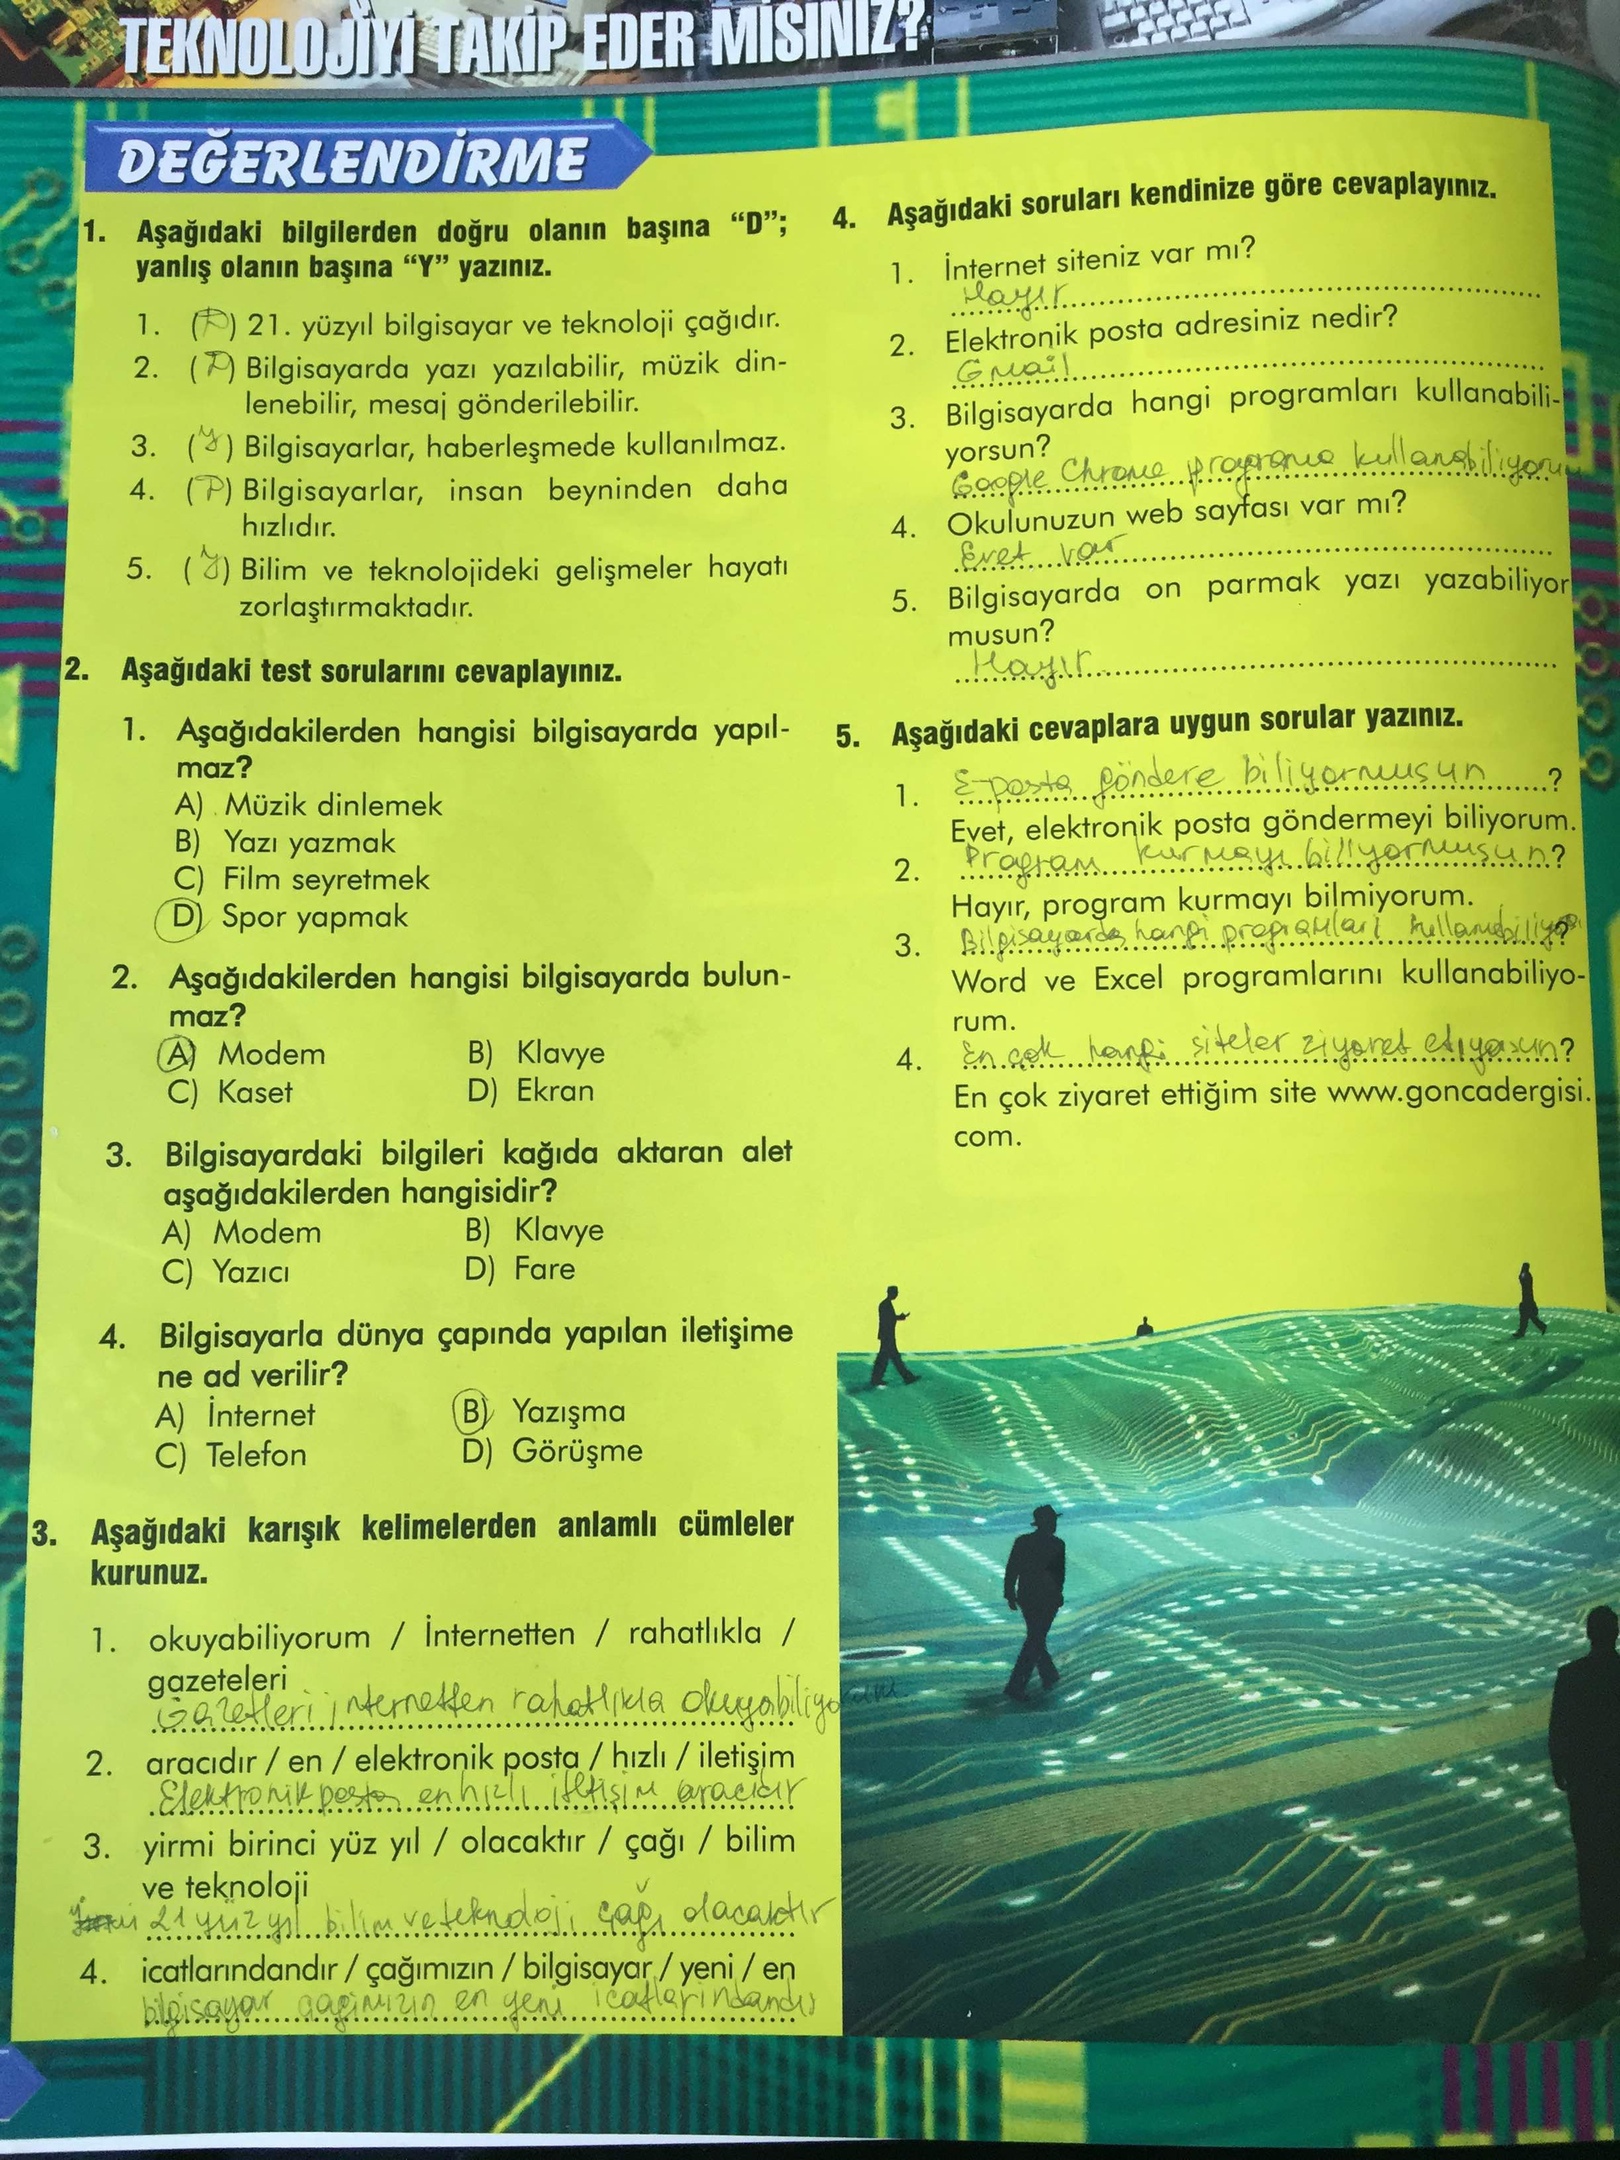 TEKNOLOJİYİ TAKİP EDER MİSİNİZ?
DEĞERLENDİRME
1. Aşağıdaki bilgilerden doğru olanın başına “D”;
yanlış olanın başına “Y” yazınız.
1. (D) 21. yüzyıl bilgisayar ve teknoloji çağıdır.
2. (D) Bilgisayarda yazı yazılabilir, müzik din-
lenebilir, mesaj gönderilebilir.
3. (y) Bilgisayarlar, haberleşmede kullanılmaz.
4. (D) Bilgisayarlar, insan beyninden daha
hızlıdır.
5. (y) Bilim ve teknolojideki gelişmeler hayatı
zorlaştırmaktadır.
2. Aşağıdaki test sorularını cevaplayınız.
1. Aşağıdakilerden hangisi bilgisayarda yapıl-
maz?
A) Müzik dinlemek
B) Yazı yazmak
C) Film seyretmek
D) Spor yapmak
2. Aşağıdakilerden hangisi bilgisayarda bulun-
maz?
A) Modem B) Klavye
C) Kaset D) Ekran
3. Bilgisayardaki bilgileri kağıda aktaran alet
aşağıdakilerden hangisidir?
A) Modem B) Klavye
C) Yazıcı D) Fare
4. Bilgisayarla dünya çapında yapılan iletişime
ne ad verilir?
A) İnternet B) Yazışma
C) Telefon D) Görüşme
3. Aşağıdaki karışık kelimelerden anlamlı cümleler
kurunuz.
1. okuyabiliyorum / İnternetten / rahatlıkla /
gazeteleri
Gazetleri internetten rahatlıkla okuyabiliyorum
2. aracıdır / en / elektronik posta / hızlı / iletişim
Elektronik posta en hızlı iletişim aracıdır
3. yirmi birinci yüz yıl / olacaktır / çağı / bilim
ve teknoloji
21 yüz yıl bilim ve teknoloji çağı olacaktır
4. icatlarındandır / çağımızın / bilgisayar / yeni / en
bilgisayar çağimizin en yeni icatlarindandır
4. Aşağıdaki soruları kendinize göre cevaplayınız.
1. İnternet siteniz var mı?
Hayır
2. Elektronik posta adresiniz nedir?
Gmail
3. Bilgisayarda hangi programları kullanabili-
yorsun?
Google Chrome programa kullanabiliyorum
4. Okulunuzun web sayfası var mı?
Evet var
5. Bilgisayarda on parmak yazı yazabiliyor
musun?
Hayır
5. Aşağıdaki cevaplara uygun sorular yazınız.
1. E-posta göndere biliyormusun ?
Evet, elektronik posta göndermeyi biliyorum.
2. Program kurmayı biliyormusun?
Hayır, program kurmayı bilmiyorum.
3. Bilgisayarda hangi programlari ?
Word ve Excel programlarını kullanabiliyo-
rum.
4. En çok hangi siteler ziyaret etiyasun?
En çok ziyaret ettiğim site www.goncadergisi.
com.